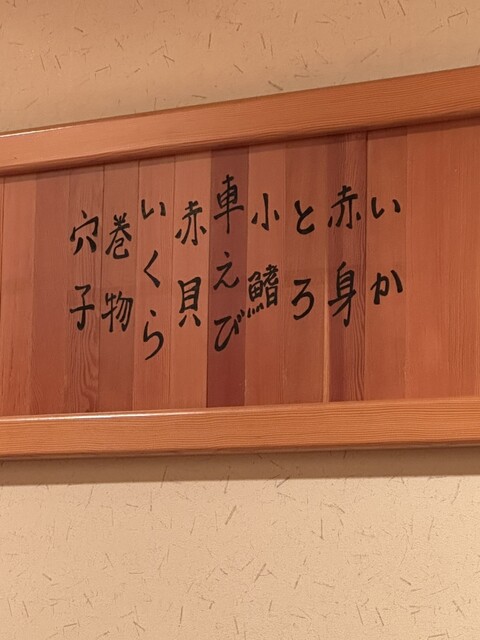 いか
赤身
とろ
小鰭
車えび
赤貝
いくら
巻物
穴子